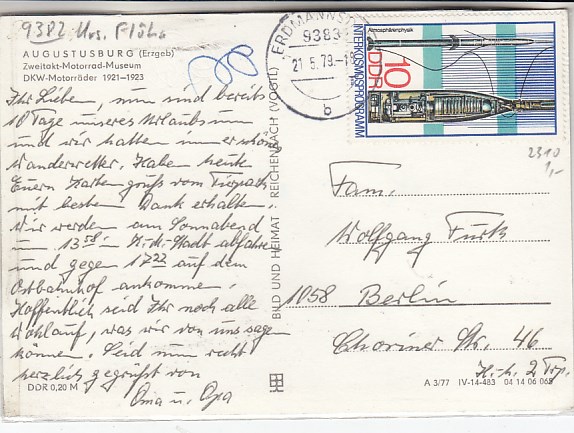 9382 Krs. Flöha
AUGUSTUSBURG (Erzgeb)
Zweitakt-Motorrad-Museum
DKW-Motorräder 1921–1923
Ihr Lieben, nun sind bereits
10 Tage unseres Urlaubs um
und wir hatten nur schöne
Wanderwetter. Haben heute
Euern Kartengruß vom
mit besten Dank erhalten.
Wir werden am Sonnabend
um 13⁵⁸ K.-M.-Stadt abfahren
und gegen 17²² auf dem
Ostbahnhof ankommen.
Hoffentlich seid Ihr noch alle
wohlauf, was wir von uns sagen
können. Seid nun recht
herzlich gegrüßt von
Oma u. Opa
DDR 0,20 M
BILD UND HEIMAT REICHENBACH (VOGTL)
9383
21.5.79.-18
b
Atmosphärenphysik
INTERKOSMOSPROGRAMM
DDR
10
2310
1,-
Fam.
Wolfgang Turk
1058 Berlin
Choriner Str. 46
H.-h. 2 Trp.
A 3/77 IV-14-483 04 14 06 065